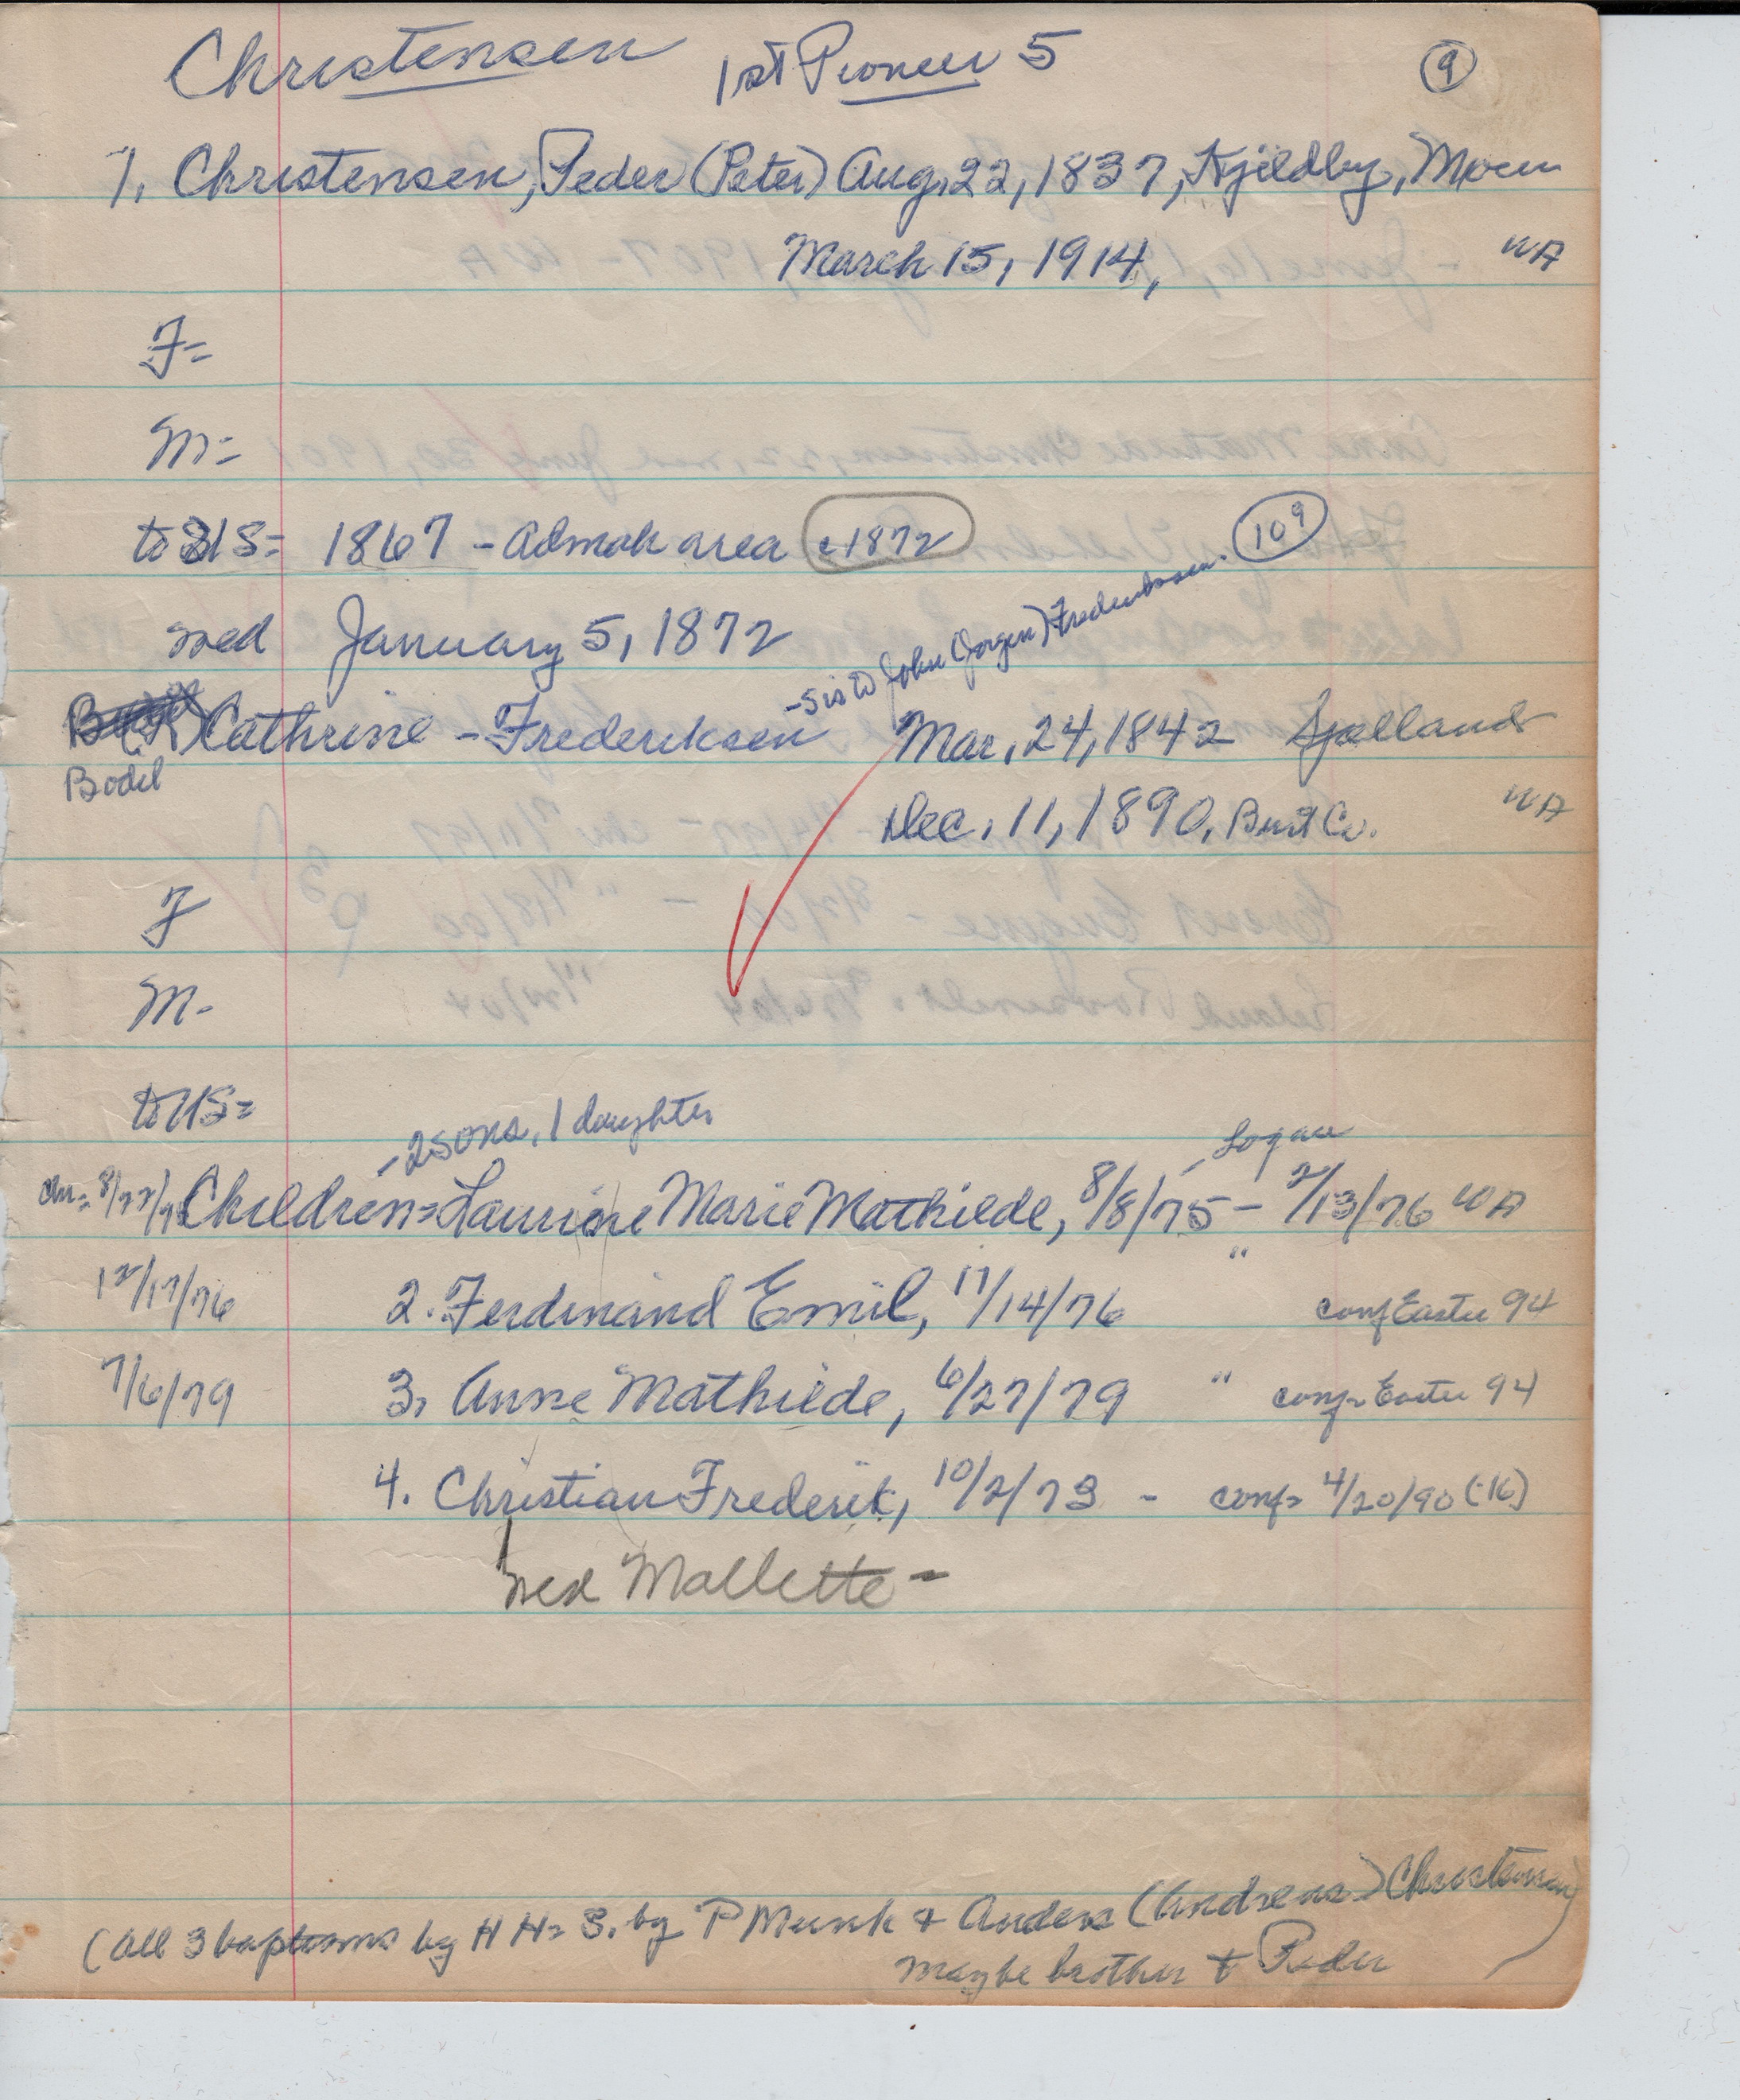 Christensen 1st Pioneer 5 9
1. Christensen, Peder (Peter) Aug. 22, 1837, Kjeldby, Moen
March 15, 1914, WA
F=
M=
to US= 1867 - Admah area c1872
wed January 5, 1872
- sis to John (Jorgen) Frederiksen. 109
Cathrine - Frederiksen Mar. 24, 1842 Sjelland
Bodil
Dec. 11, 1890, Burt Co. WA
F
M-
to US=
- 2 sons, 1 daughter
- Logan
Children= Laurine Marie Mathilde, 8/8/75 - 2/13/76 WA
12/17/76 2. Ferdinand Emil, 11/14/76 " conf Easter 94
7/6/79 3. Anne Mathilde, 6/27/79 " conf= Easter 94
4. Christian Frederik, 10/2/73 - conf= 4/20/90 (-16)
wed Mallette -
(all 3 baptisms by H H= S. by P Munk + Anders (Andreas) Christensen)
maybe brother to Peder